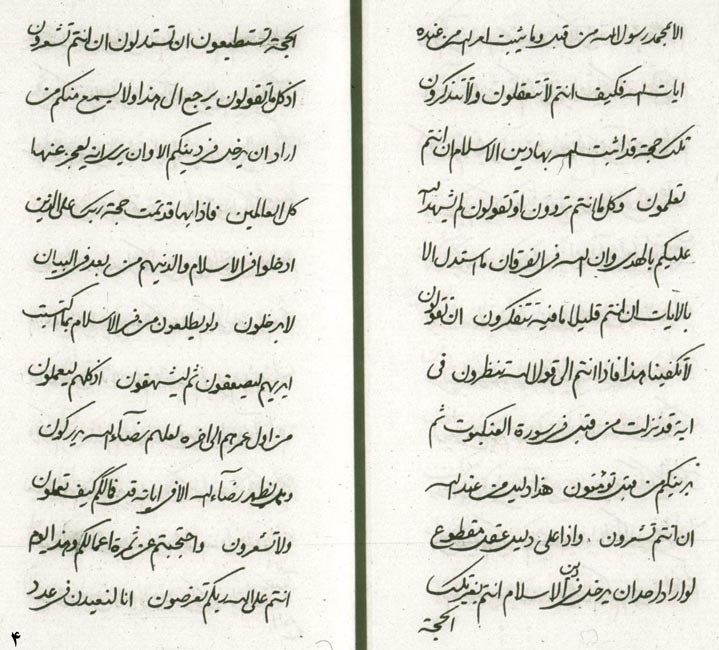 الا لمحمد رسول الله من قبل وما يثبت امر الله من عنده
ايات الله فكيف انتم لا تتعقلون ولا تتذكرون
تلك حجة قد اثبت الله بها دين الاسلام ان انتم
تعلمون وكل ما انتم تردون او تقولون لم يشهد الله
عليكم بالهدى وان الله في الفرقان ما استدل الا
بالايات ان انتم قليلا ما فيه تتفكرون ان تقولون
لا تكفينا هذا فاذا انتم الى قول الله تنظرون في
اية قد نزلت من قبل في سورة العنكبوت ثم
من قبل تؤمنون هذا دليل من عند الله
ان انتم تشعرون واذا على دليل عقل مقطوع
لو اراد احد ان يدخل في دين الاسلام انتم بتلك
الحجة
الحجة تستطيعون ان تستدلون ان انتم تشعرون
اذ كل ما تقولون يرجع الى هذا ولا يسمع منكم من
اراد ان يدخل في دينكم الا وان يرى انه يعجز عنها
كل العالمين فاذا بها قد تمت حجة ربك على الذين
ادخلوا في الاسلام والذينهم من بعد في البيان
لا يدخلون ولو يطلعون من في الاسلام بما اكتسبت
ايديهم ليصعقون ثم ليشهقون اذ كلهم ليعملون
من اول عمرهم الى اخره لعلهم رضاء الله يدركون
ولم يظهر رضاء الله الا في اياته قل فالكم كيف تعملون
ولا تشعرون واحتجبتم عن ثمرة اعمالكم وهذا اليوم
انتم على الله ربكم تعرضون انا لنعيدن في عدد
۴